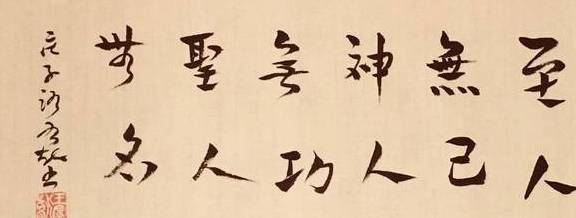 至人
無己
神人
無功
聖人
無名
庄子語